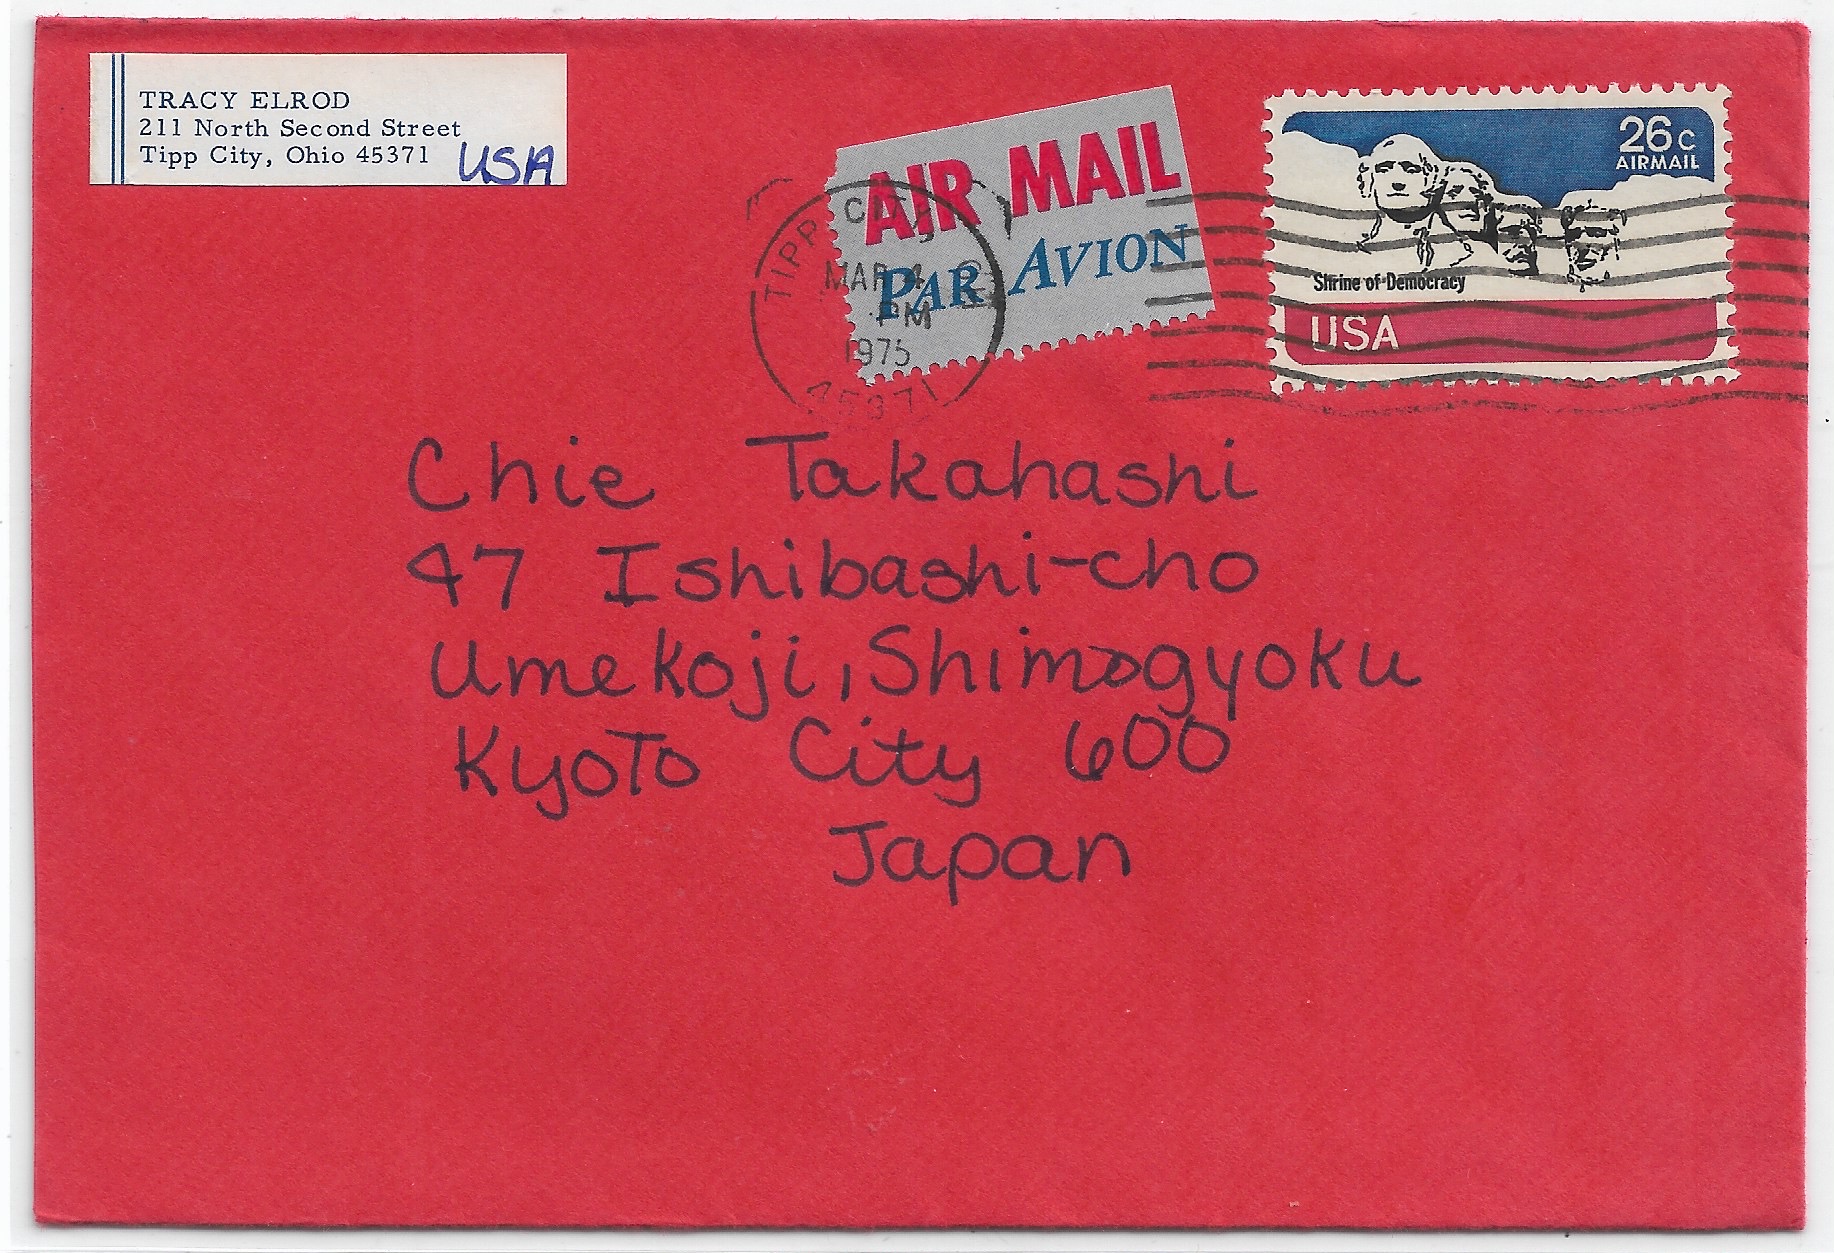 TRACY ELROD
211 North Second Street
Tipp City, Ohio 45371 USA
AIR MAIL
PAR AVION
TIPP CITY
MAR 4
PM
1975
45371
26c
AIRMAIL
Shrine of Democracy
USA
Chie Takahashi
47 Ishibashi-cho
Umekoji, Shimogyoku
Kyoto City 600
Japan